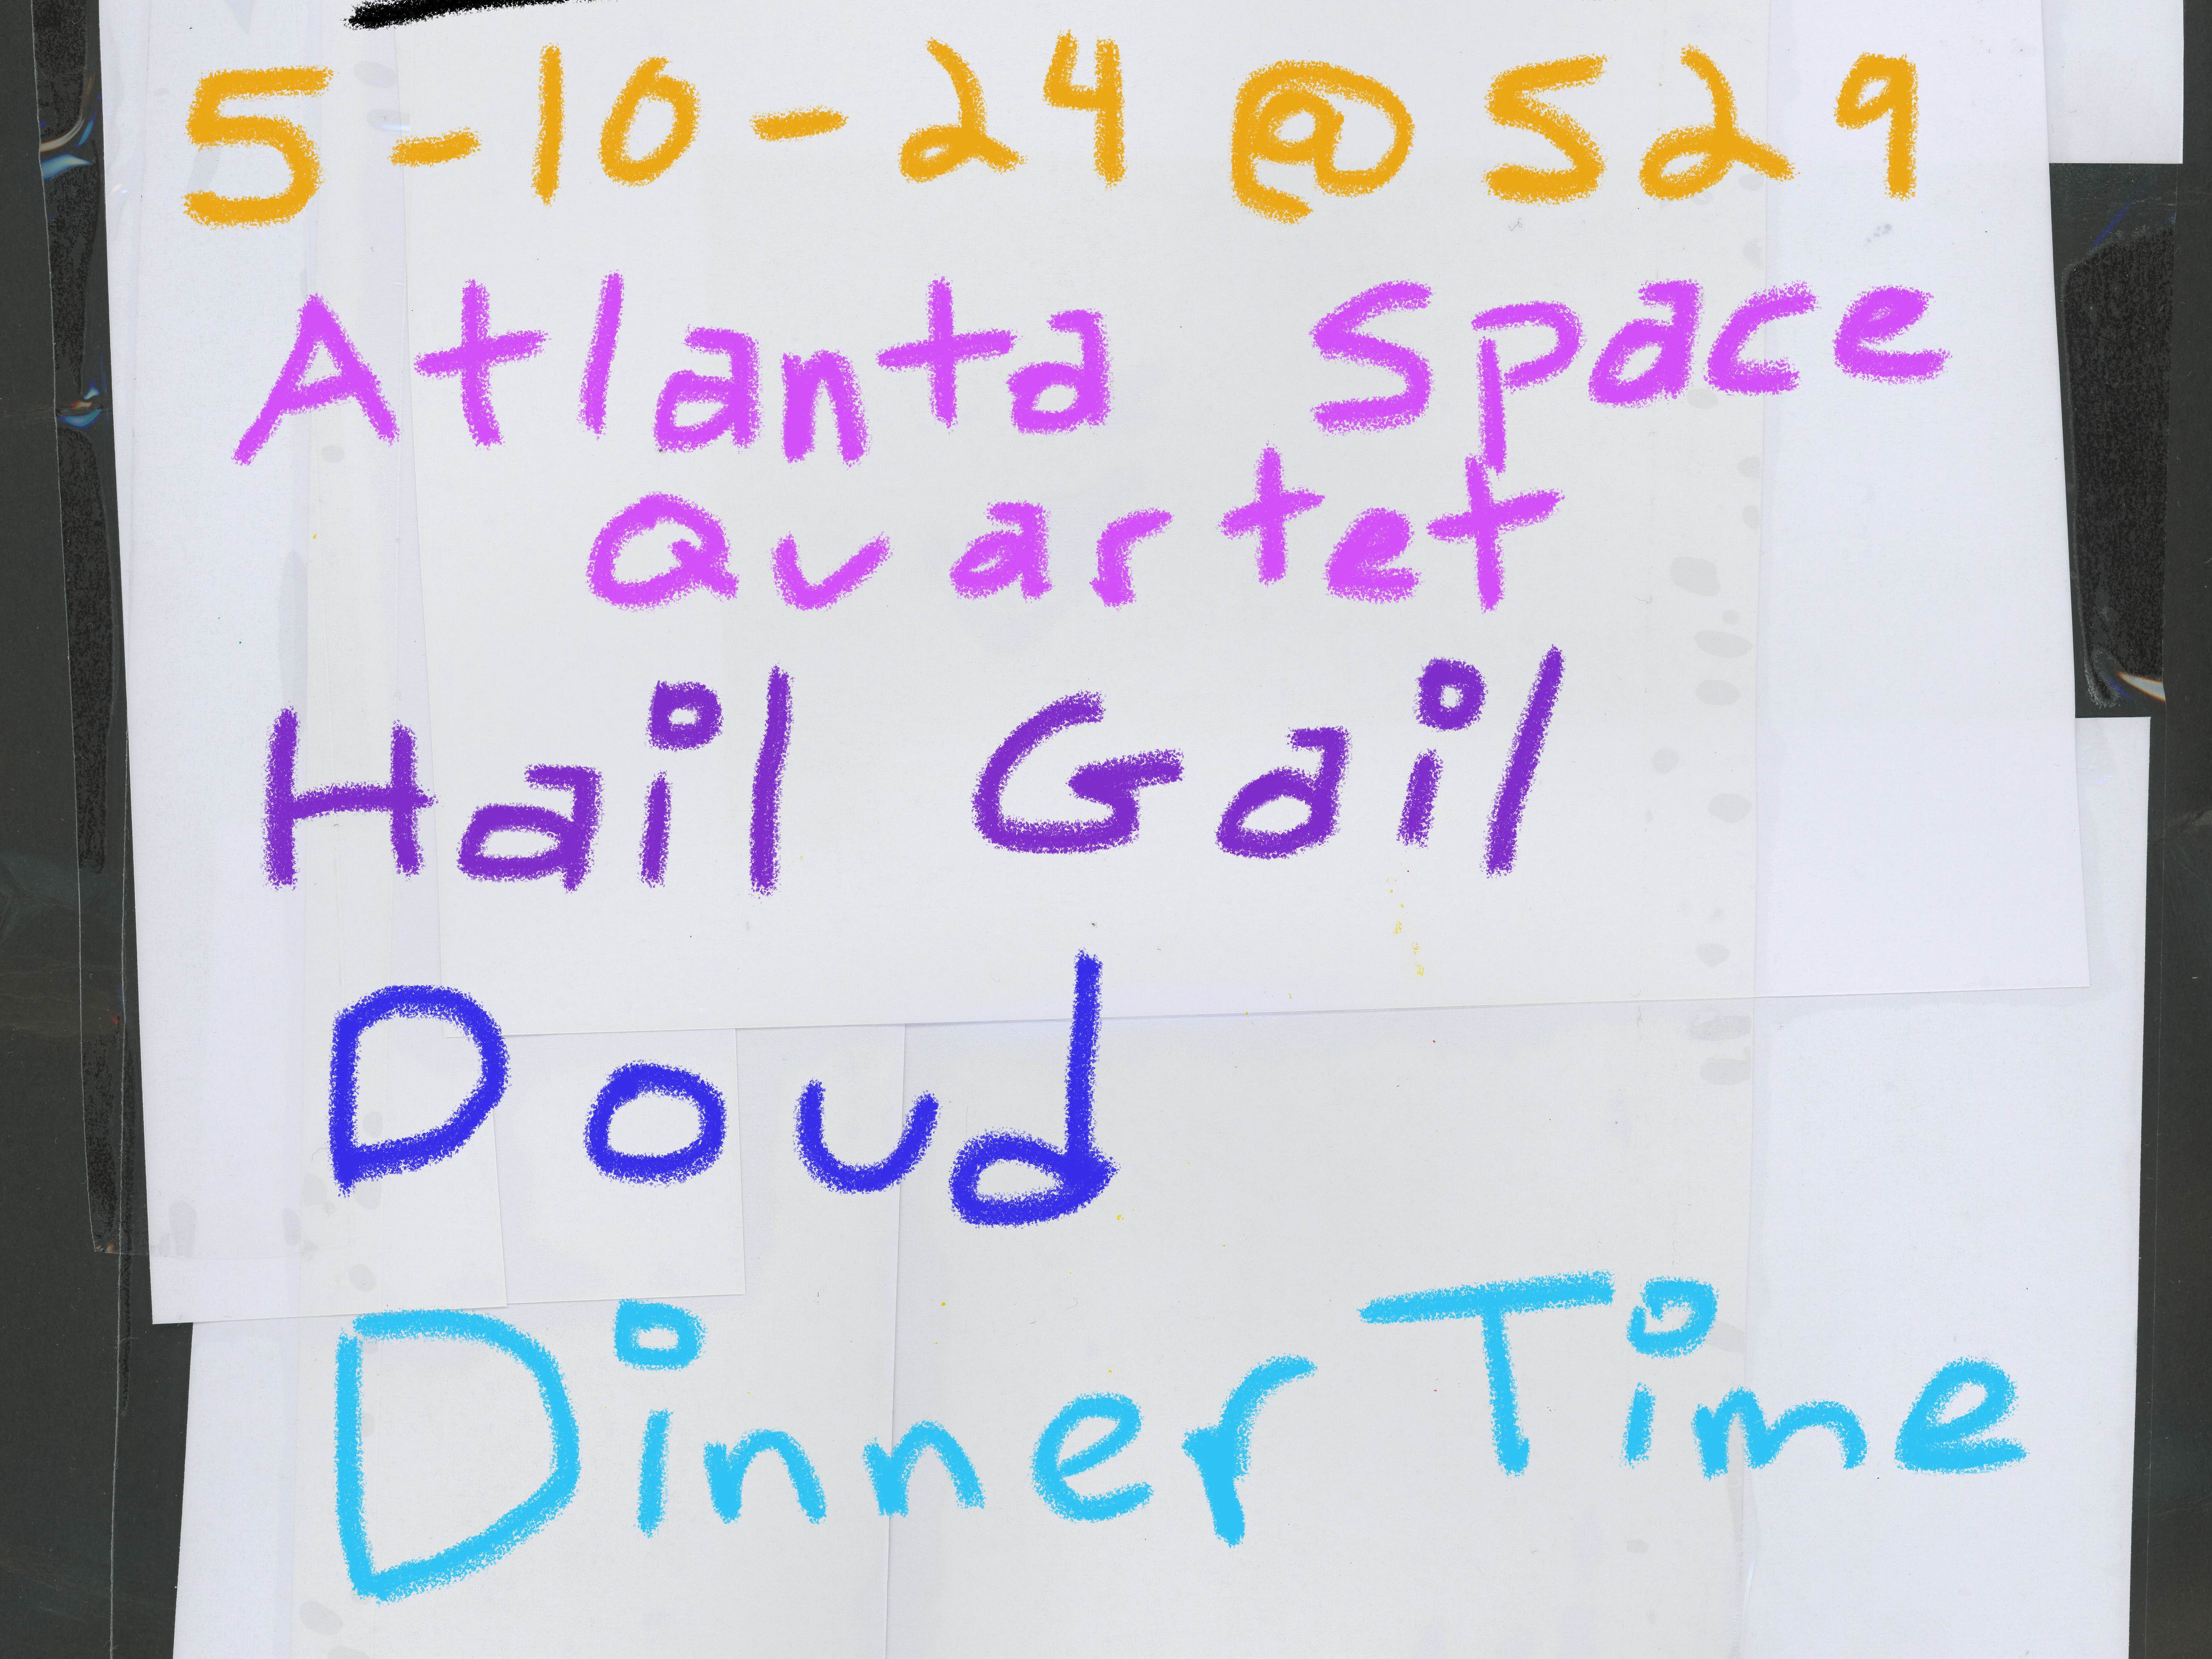 5-10-24 @ 529
Atlanta Space
Quartet
Hail Gail
Doud
Dinner Time